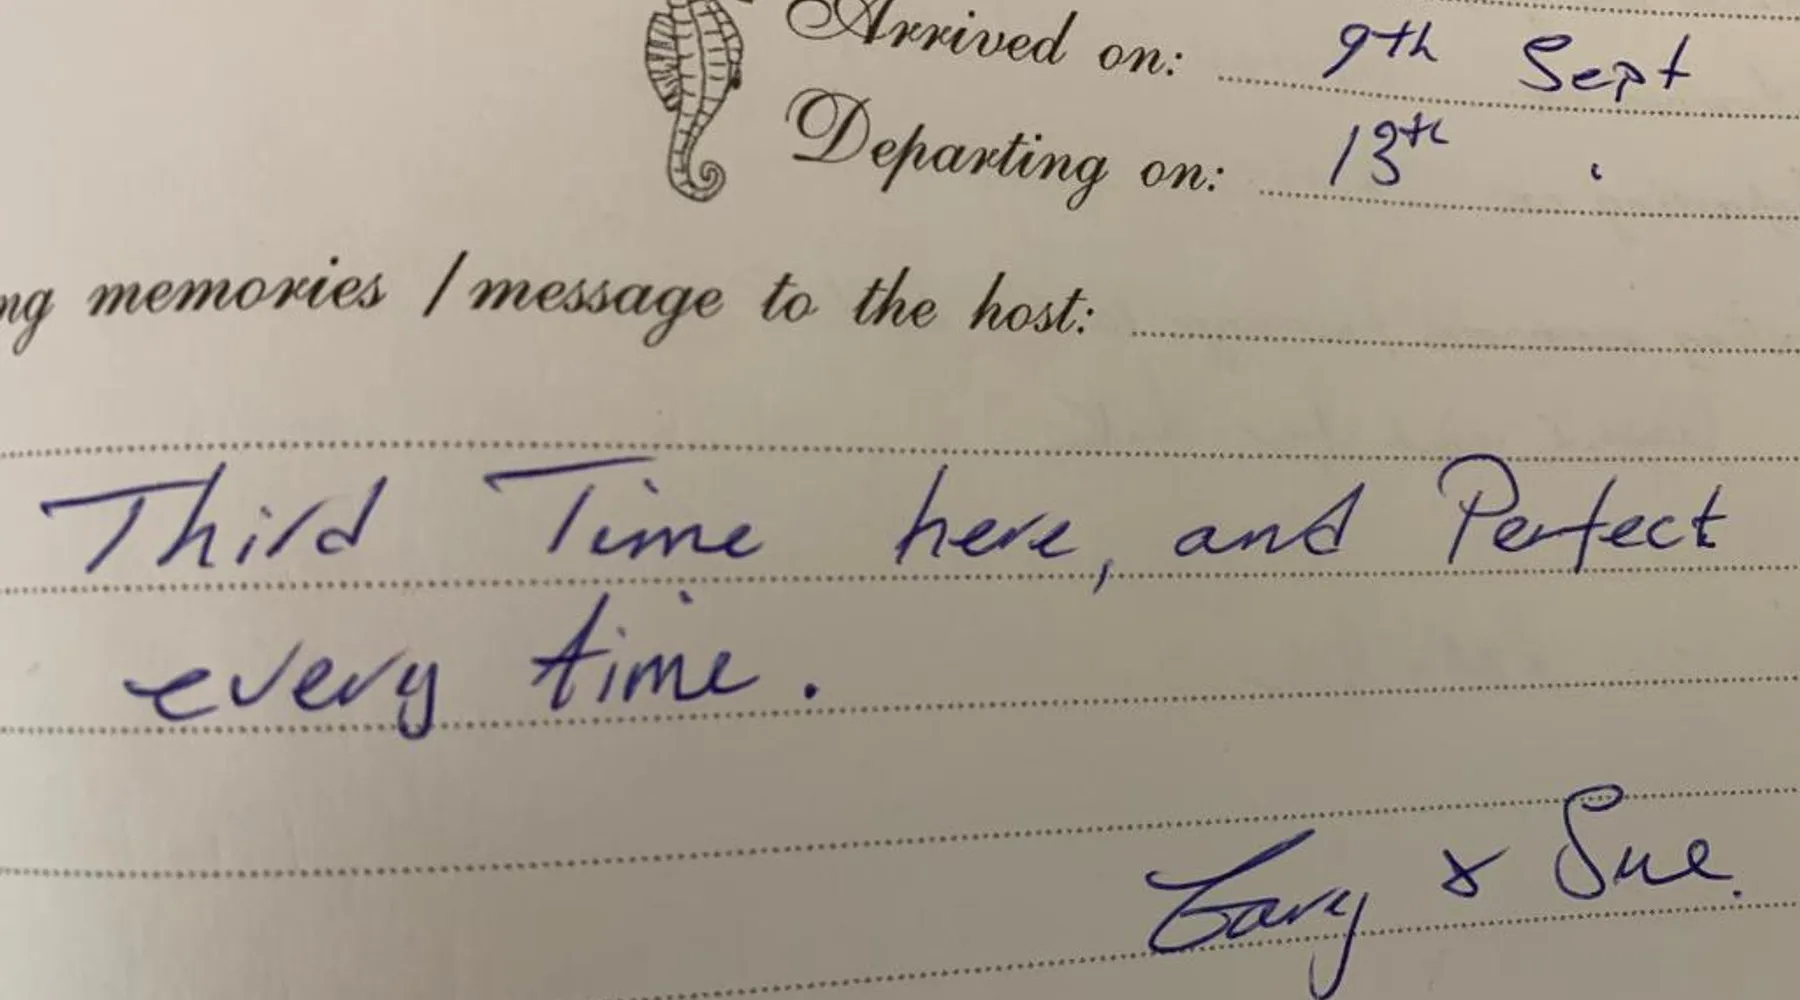 Arrived on: 9th Sept
Departing on: 13th "
ng memories / message to the host:
Third Time here, and Perfect
every time.
Gary & Sue.